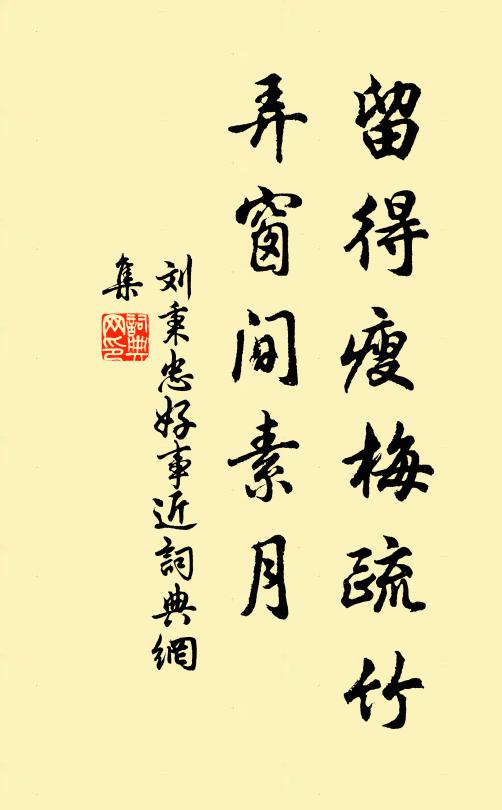 留得瘦梅疏竹
弄窗間素月
刘秉忠好事近詞典網
集
詞典
网印